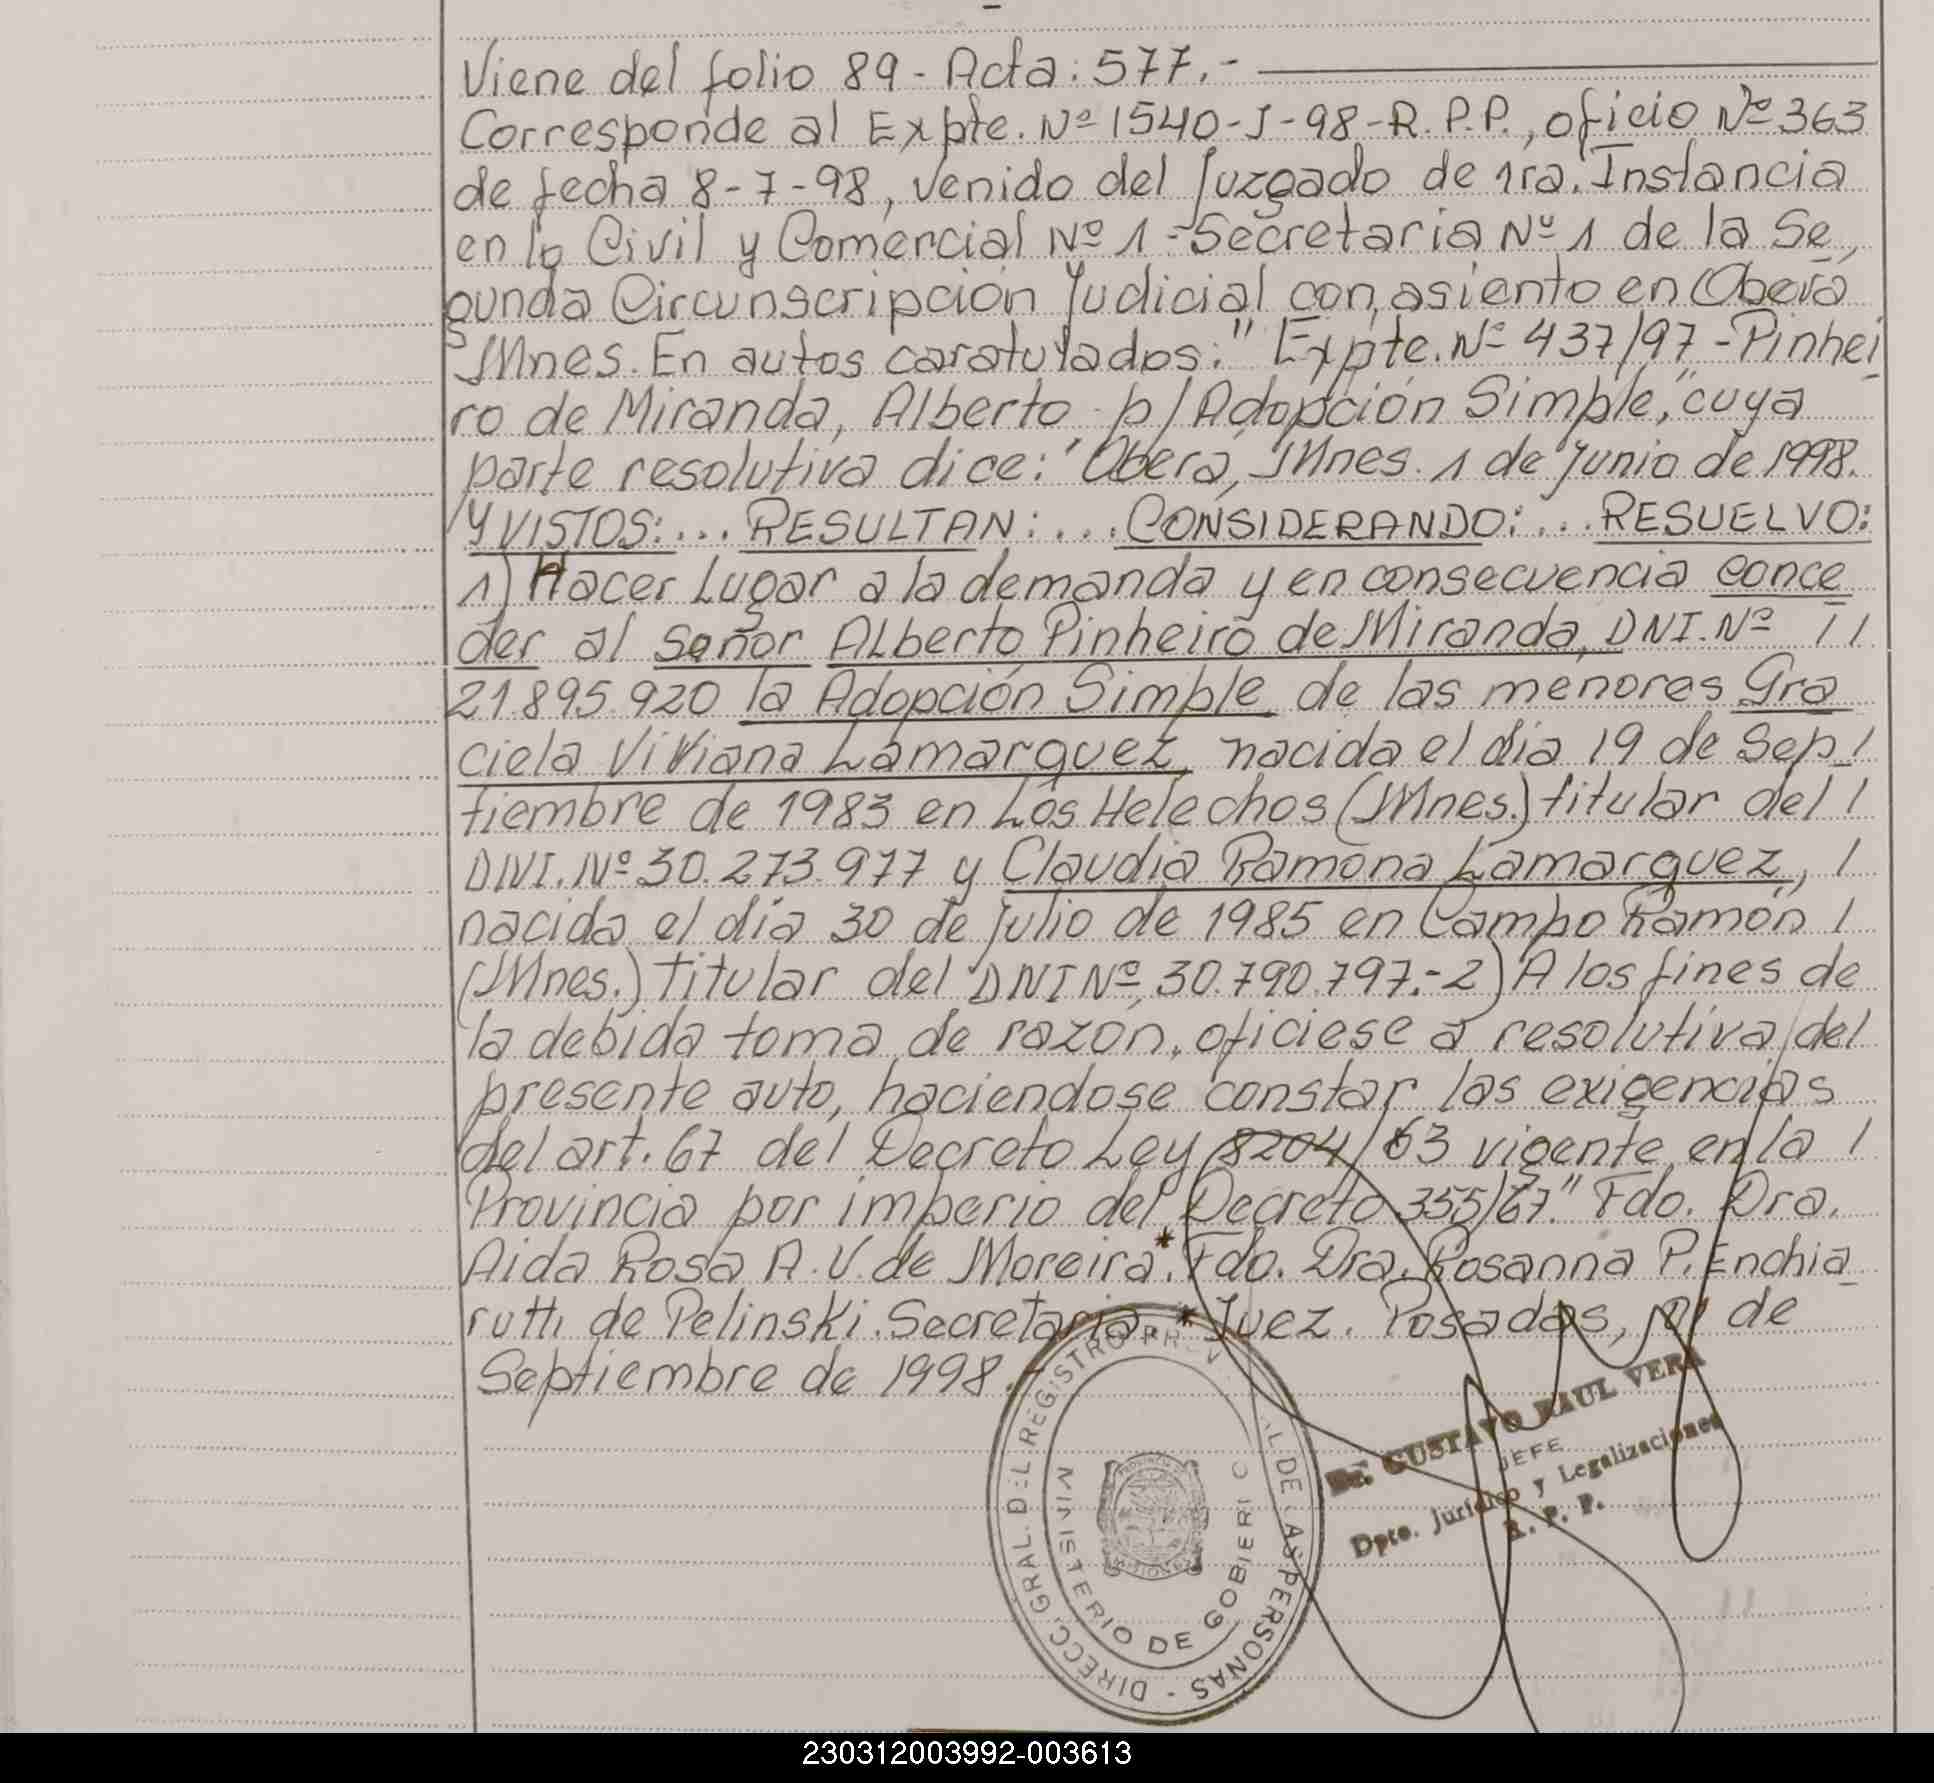 Viene del folio 89 - Acta: 577.-
Corresponde al Expte. Nº 1540-J-98-R.P.P., oficio Nº 363
de fecha 8-7-98, venido del Juzgado de 1ra. Instancia
en lo Civil y Comercial Nº 1 - Secretaria Nº 1 de la Se
gunda Circunscripción Judicial con asiento en Oberá
Mnes. En autos caratulados: "Expte. Nº 437/97 - Pinhei
ro de Miranda, Alberto p/ Adopción Simple," cuya
parte resolutiva dice: "Oberá, Mnes. 1 de Junio de 1998.
Y VISTOS:... RESULTAN:... CONSIDERANDO:... RESUELVO:
1) Hacer Lugar a la demanda y en consecuencia conce
der al Señor Alberto Pinheiro de Miranda, DNI. Nº //
21.895.920 la Adopción Simple de las menores Gra
ciela Viviana Lamarquez, nacida el dia 19 de Sep /
tiembre de 1983 en Los Helechos (Mnes.) titular del /
DNI. Nº 30.273.977 y Claudia Ramona Lamarquez, /
nacida el día 30 de Julio de 1985 en Campo Ramón /
(Mnes.) titular del DNI Nº 30.790.797.- 2) A los fines de
la debida toma de razón, oficiese a resolutiva del
presente auto, haciendose constar las exigencias
del art. 67 del Decreto Ley 8204/63 vigente en la /
Provincia por imperio del Decreto 355/67." Fdo. Dra.
Aida Rosa A. V. de Moreira.* Fdo. Dra. Rosanna P. Enchia
rutti de Pelinski. Secretaria. * Juez. Posadas, de
Septiembre de 1998.-
DIRECC. GRAL. DEL REGISTRO PROV. DE LAS PERSONAS -
MINISTERIO DE GOBIERNO
PROVINCIA DE MISIONES
Dr. GUSTAVO RAUL VERA
JEFE
Dpto. Jurídico y Legalizaciones
R. P. P.
230312003992-003613